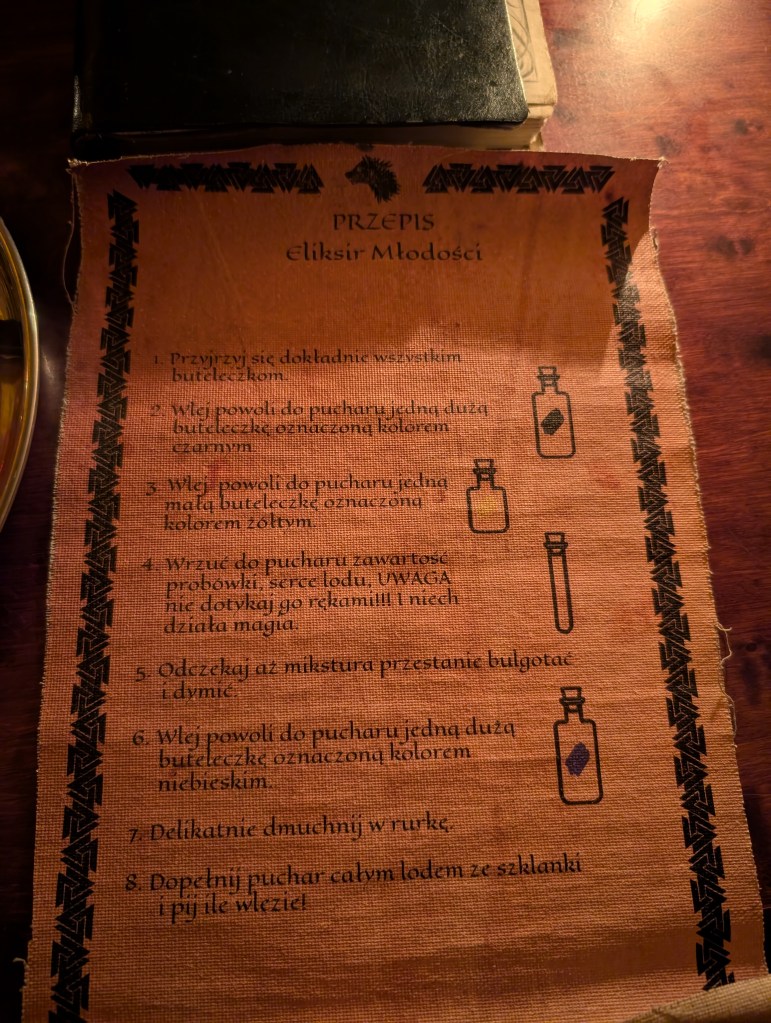 PRZEPIS
Eliksir Młodości
1. Przyjrzyj się dokładnie wszystkim
buteleczkom.
2. Wlej powoli do pucharu jedną dużą
buteleczkę oznaczoną kolorem
czarnym.
3. Wlej powoli do pucharu jedną
małą buteleczkę oznaczoną
kolorem żółtym.
4. Wrzuć do pucharu zawartość
probówki, serce lodu, UWAGA
nie dotykaj go rękami!!! I niech
działa magia.
5. Odczekaj aż mikstura przestanie bulgotać
i dymić.
6. Wlej powoli do pucharu jedną dużą
buteleczkę oznaczoną kolorem
niebieskim.
7. Delikatnie dmuchnij w rurkę.
8. Dopełnij puchar całym lodem ze szklanki
i pij ile wlezie!